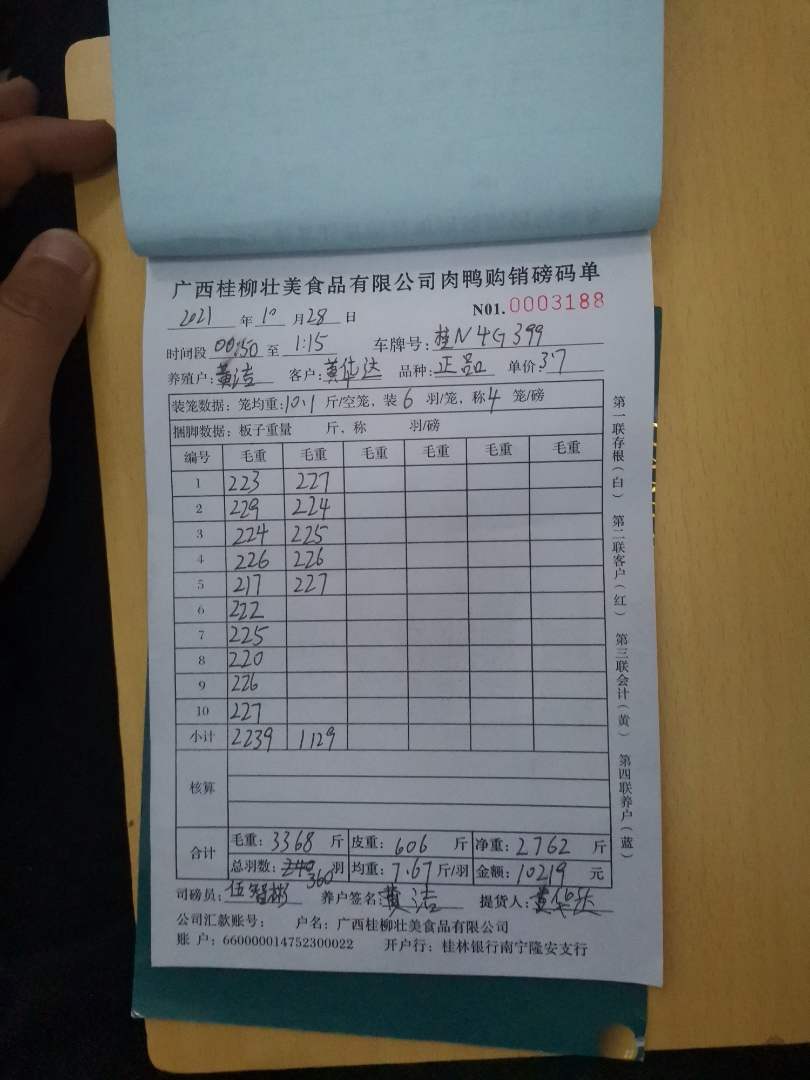 广西桂柳壮美食品有限公司肉鸭购销磅码单
2021 年 10 月 28 日 N01. 0003188
时间段 00:50 至 1:15 车牌号: 桂N4G399
养殖户: 黄洁 客户: 黄华达 品种: 正品 单价 3.7
装笼数据: 笼均重: 10.1 斤/空笼, 装 6 羽/笼, 称 4 笼/磅
捆脚数据: 板子重量 斤, 称 羽/磅
编号 毛重 毛重 毛重 毛重 毛重 毛重
1 223 227
2 229 224
3 224 225
4 226 226
5 217 227
6 222
7 225
8 220
9 226
10 227
小计 2239 1129
核算
合计 毛重: 3368 斤 皮重: 606 斤 净重: 2762 斤
总羽数: 240 360 羽 均重: 7.67 斤/羽 金额: 10219 元
司磅员: 伍智彬 养户签名: 黄洁 提货人: 黄华达
公司汇款账号: 户名: 广西桂柳壮美食品有限公司
账 户: 660000014752300022 开户行: 桂林银行南宁隆安支行
第一联存根(白) 第二联客户(红) 第三联会计(黄) 第四联养户(蓝)